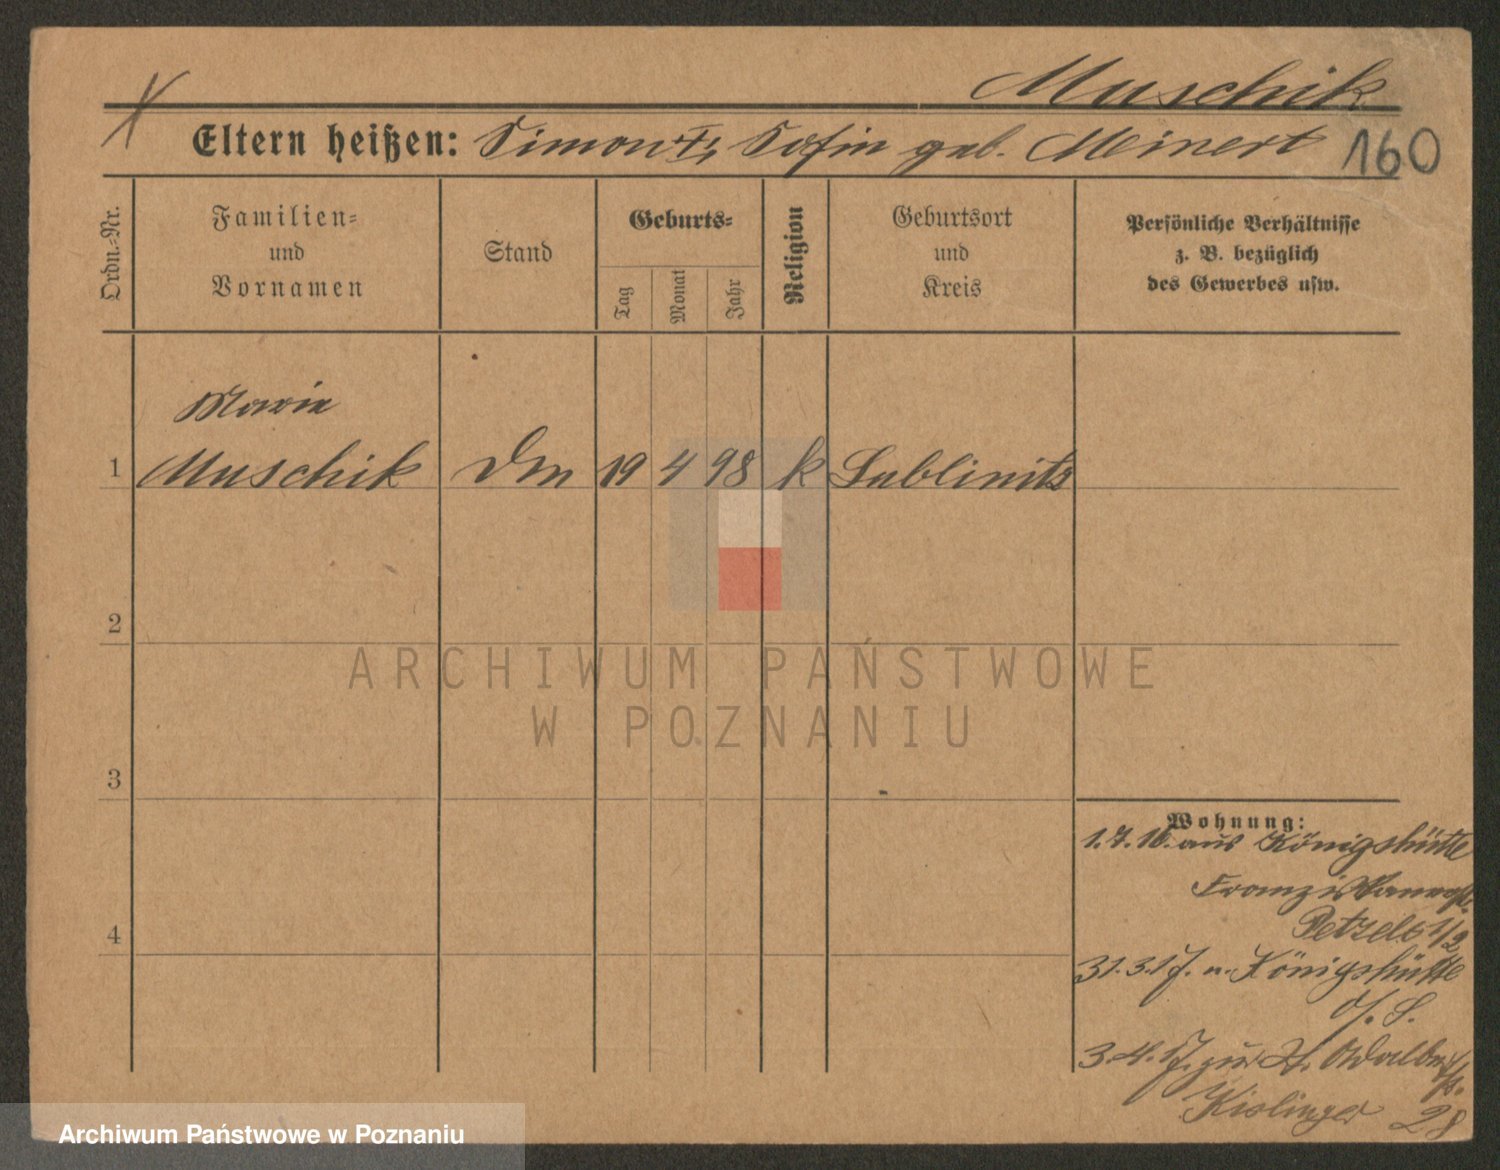 Muschik
Eltern heißen: Simon †, Sofie geb. Meinert 160
Ordn.-Nr.
Familien-
und
Vornamen
Stand
Geburts-
Tag
Monat
Jahr
Religion
Geburtsort
und
Kreis
Persönliche Verhältnisse
z. B. bezüglich
des Gewerbes usw.
Marie
1 Muschik 19 4 98 k Lublinitz
2
ARCHIWUM PAŃSTWOWE
W POZNANIU
3
Wohnung:
1.7.16. aus Königshütte
Petzelt 1/2
4
31.3.17. n. Königshütte
O/S.
3.4.17. zur St. Adalbertstr.
Kislinger 28
Archiwum Państwowe w Poznaniu